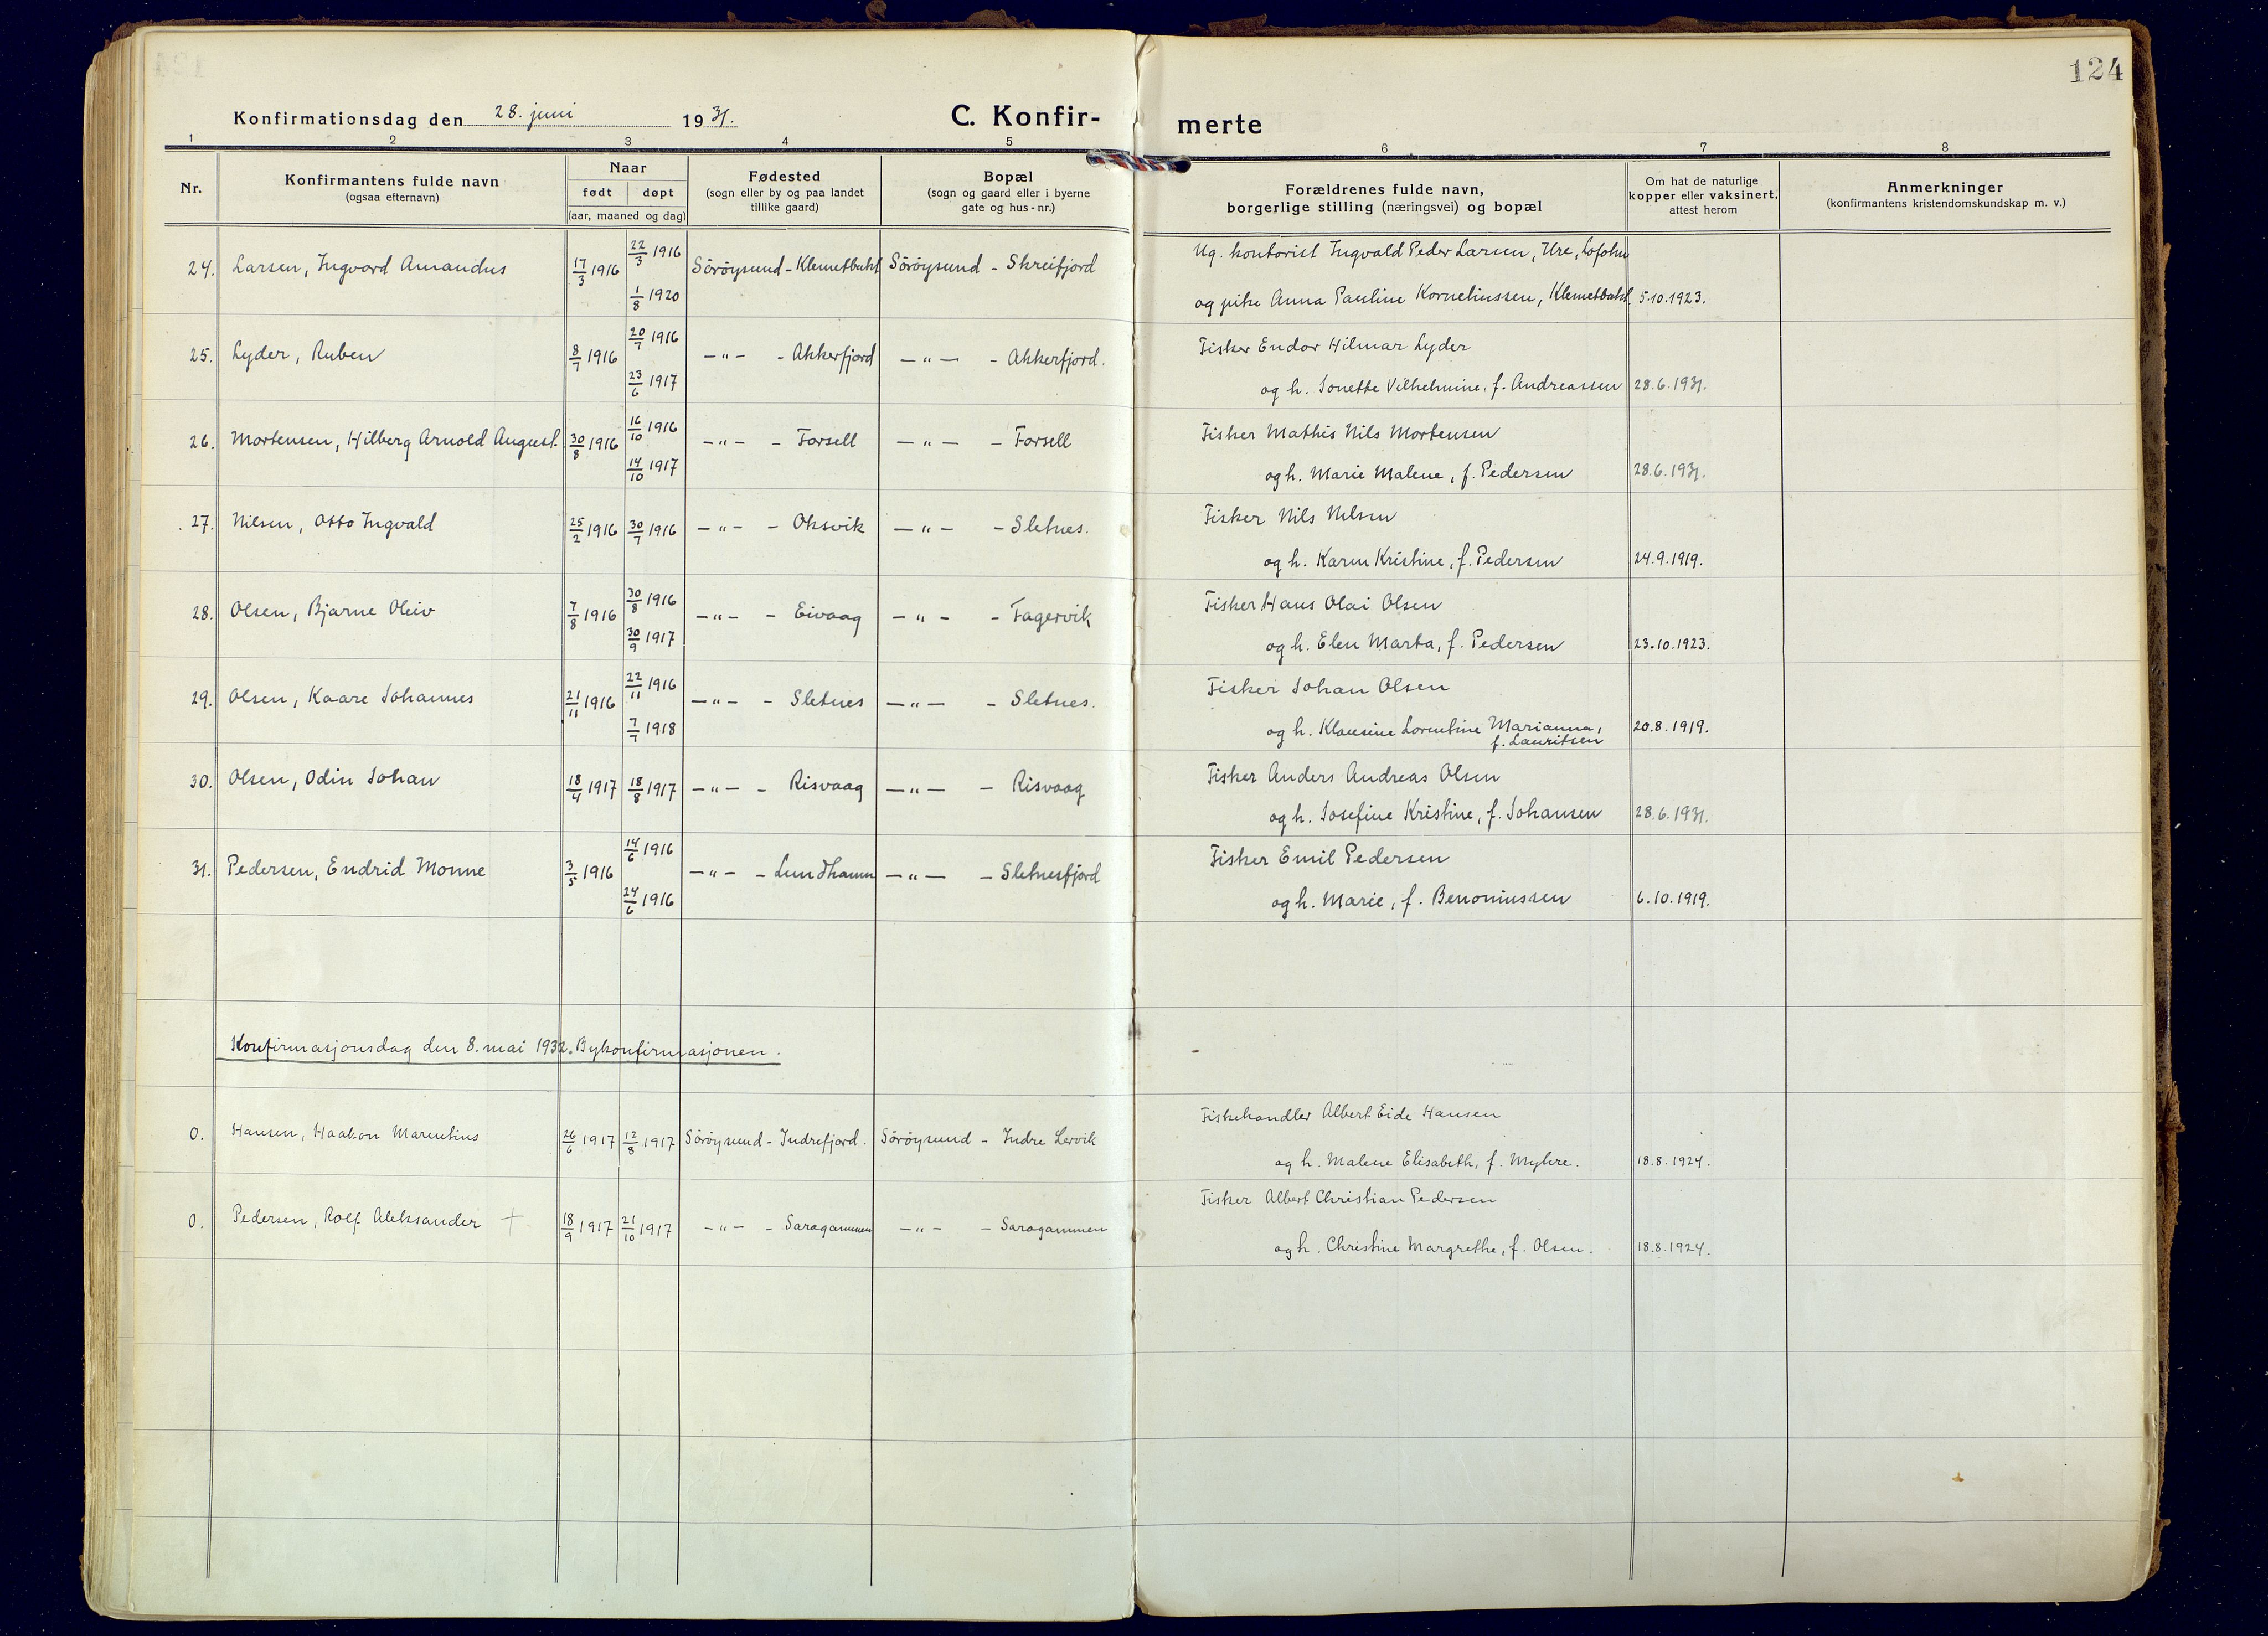 124
Konfirmationsdag den 28. juni 1931. C. Konfir- merte
1 2 3 4 5 6 7 8
Nr.
Konfirmantens fulde navn
(ogsaa efternavn)
Naar
født døpt
(aar, maaned og dag)
Fødested
(sogn eller by og paa landet
tillike gaard)
Bopæl
(sogn og gaard eller i byerne
gate og hus-nr.)
Forældrenes fulde navn,
borgerlige stilling (næringsvei) og bopæl
Om hat de naturlige
kopper eller vaksinert,
attest herom
Anmerkninger
(konfirmantens kristendomskundskap m. v.)
22/3 1916 Ug. kontorist Ingvald Peder Larsen, Ure, Lofoten
24. Larsen, Ingvard Amandus 17/3 1916 Söröysund - Klemetbukt Söröysund - Skreifjord
1/8 1920 og pike Anna Pauline Korneliussen, Klemetbukt. 5.10.1923.
20/7 1916 Fisker Endor Hilmar Lyder
25. Lyder, Ruben 8/7 1916 -"- - Akkerfjord -"- - Akkerfjord.
23/6 1917 og h. Jonette Vilhelmine, f. Andreassen 28.6.1931.
16/10 1916 Fisker Mathis Nils Mortensen
26. Mortensen, Hilberg Arnold August. 30/8 1916 -"- - Forsell -"- - Forsell
14/10 1917 og h. Marie Malene, f. Pedersen 28.6.1931.
Fisker Nils Nilsen
27. Nilsen, Otto Ingvald 25/2 1916 30/7 1916 -"- - Oksvik -"- - Sletnes.
og h. Karen Kristine, f. Pedersen 24.9.1919.
30/8 1916 Fisker Hans Olai Olsen
28. Olsen, Bjarne Oleiv 7/8 1916 -"- - Eivaag -"- - Fagervik
30/9 1917 og h. Elen Marta, f. Pedersen 23.10.1923.
22/11 1916 Fisker Johan Olsen
29. Olsen, Kaare Johannes 21/11 1916 -"- - Sletnes -"- - Sletnes.
7/7 1918 og h. Klausine Lorentine Marianna, 20.8.1919.
f. Lauritsen
Fisker Anders Andreas Olsen
30. Olsen, Odin Johan 18/4 1917 18/8 1917 -"- - Risvaag -"- - Risvaag
og h. Josefine Kristine, f. Johansen 28.6.1931.
14/6 1916 Fisker Emil Pedersen
31. Pedersen, Endrid Monne 3/5 1916 -"- - Lundhamn -"- - Sletnesfjord
24/6 1916 og h. Marie, f. Benoniussen 6.10.1919.
Konfirmasjonsdag den 8. mai 1932. Bykonfirmasjonen.
Fiskehandler Albert Eide Hansen
0. Hansen, Haakon Marentius 26/6 1917 12/8 1917 Söröysund - Indrefjord. Söröysund - Indre Lervik
og h. Malene Elisabeth, f. Myhre. 18.8.1924.
Fisker Albert Christian Pedersen
0. Pedersen, Rolf Aleksander + 18/9 1917 21/10 1917 -"- - Saragammen -"- - Saragammen
og h. Christine Margrethe, f. Olsen. 18.8.1924.